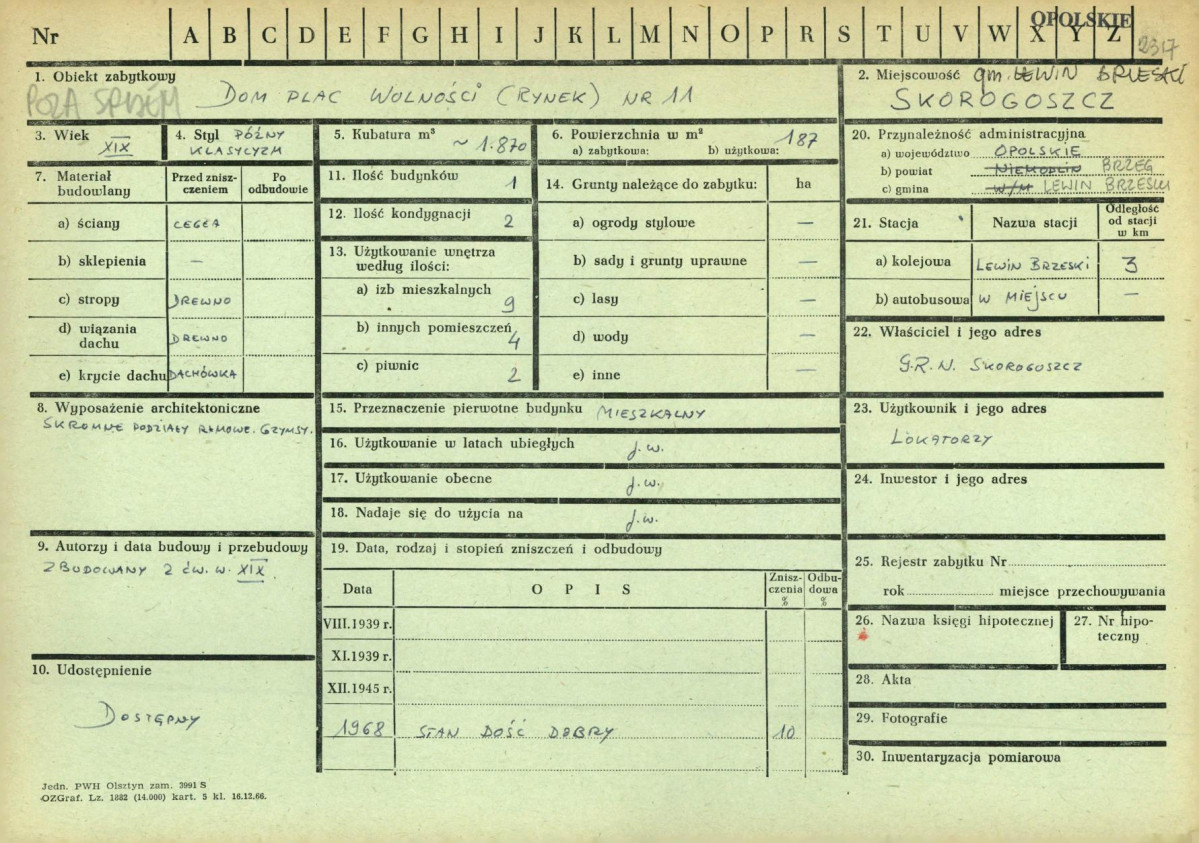 Nr A B C D E F G H I J K L M N O P R S T U V W X Y Z
OPOLSKIE
2317
1. Obiekt zabytkowy
DOM PLAC WOLNOŚCI (RYNEK) NR 11
2. Miejscowość gm. LEWIN BRZESKI
SKOROGOSZCZ
3. Wiek XIX
4. Styl PÓŹNY
KLASYCYZM
5. Kubatura m³
~ 1.870
6. Powierzchnia w m² 187
a) zabytkowa: b) użytkowa:
7. Materiał budowlany
Przed zniszczeniem
Po odbudowie
a) ściany CEGŁA
b) sklepienia —
c) stropy DREWNO
d) wiązania dachu DREWNO
e) krycie dachu DACHÓWKA
8. Wyposażenie architektoniczne
SKROMNE PODZIAŁY RAMOWE. GZYMSY.
9. Autorzy i data budowy i przebudowy
ZBUDOWANY 2 ĆW. W. XIX
10. Udostępnienie
DOSTĘPNY
11. Ilość budynków 1
12. Ilość kondygnacji 2
13. Użytkowanie wnętrza
według ilości:
a) izb mieszkalnych 9
b) innych pomieszczeń 4
c) piwnic 2
14. Grunty należące do zabytku: ha
a) ogrody stylowe —
b) sady i grunty uprawne —
c) lasy —
d) wody —
e) inne —
15. Przeznaczenie pierwotne budynku MIESZKALNY
16. Użytkowanie w latach ubiegłych j.w.
17. Użytkowanie obecne j.w.
18. Nadaje się do użycia na j.w.
19. Data, rodzaj i stopień zniszczeń i odbudowy
Data O P I S Zniszczenia % Odbudowa %
VIII.1939 r.
XI.1939 r.
XII.1945 r.
1968 STAN DOŚĆ DOBRY 10
20. Przynależność administracyjna
a) województwo OPOLSKIE
b) powiat NIEMODLIN BRZEG
c) gmina W/M LEWIN BRZESKI
21. Stacja Nazwa stacji Odległość od stacji w km
a) kolejowa LEWIN BRZESKI 3
b) autobusowa W MIEJSCU —
22. Właściciel i jego adres
G.R.N. SKOROGOSZCZ
23. Użytkownik i jego adres
LOKATORZY
24. Inwestor i jego adres
25. Rejestr zabytku Nr
rok miejsce przechowywania
26. Nazwa księgi hipotecznej
27. Nr hipoteczny
28. Akta
29. Fotografie
30. Inwentaryzacja pomiarowa
Jedn. PWH Olsztyn zam. 3991 S
OZGraf. Lz. 1882 (14.000) kart. 5 kl. 16.12.66.